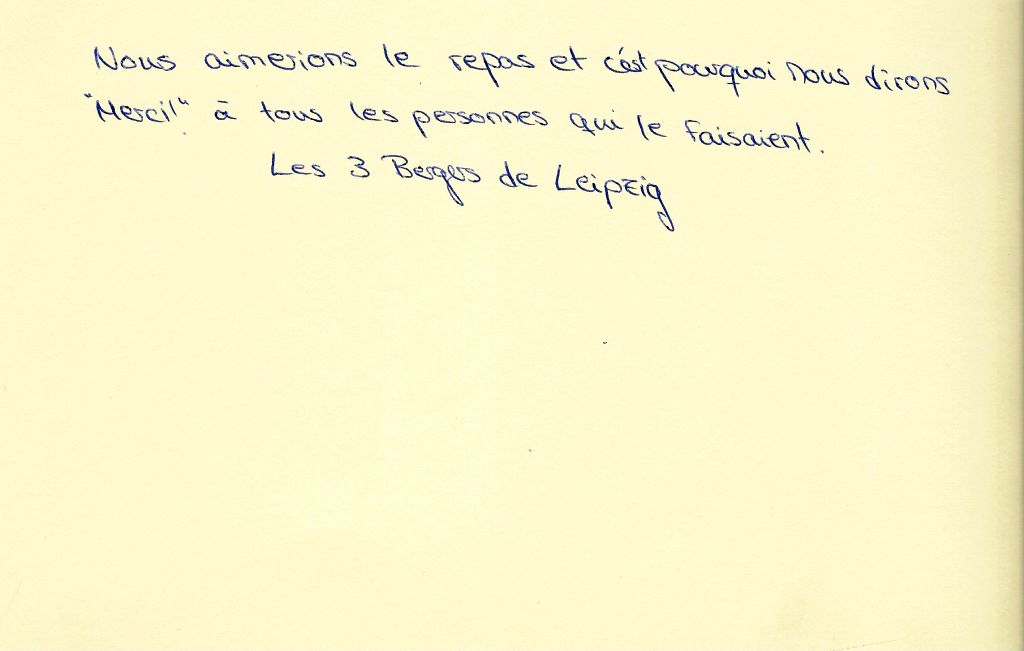 Nous aimerions le repas et c'est pourquoi nous dirons
"Merci!" à tous les personnes qui le faisaient.
Les 3 Bergers de Leipzig